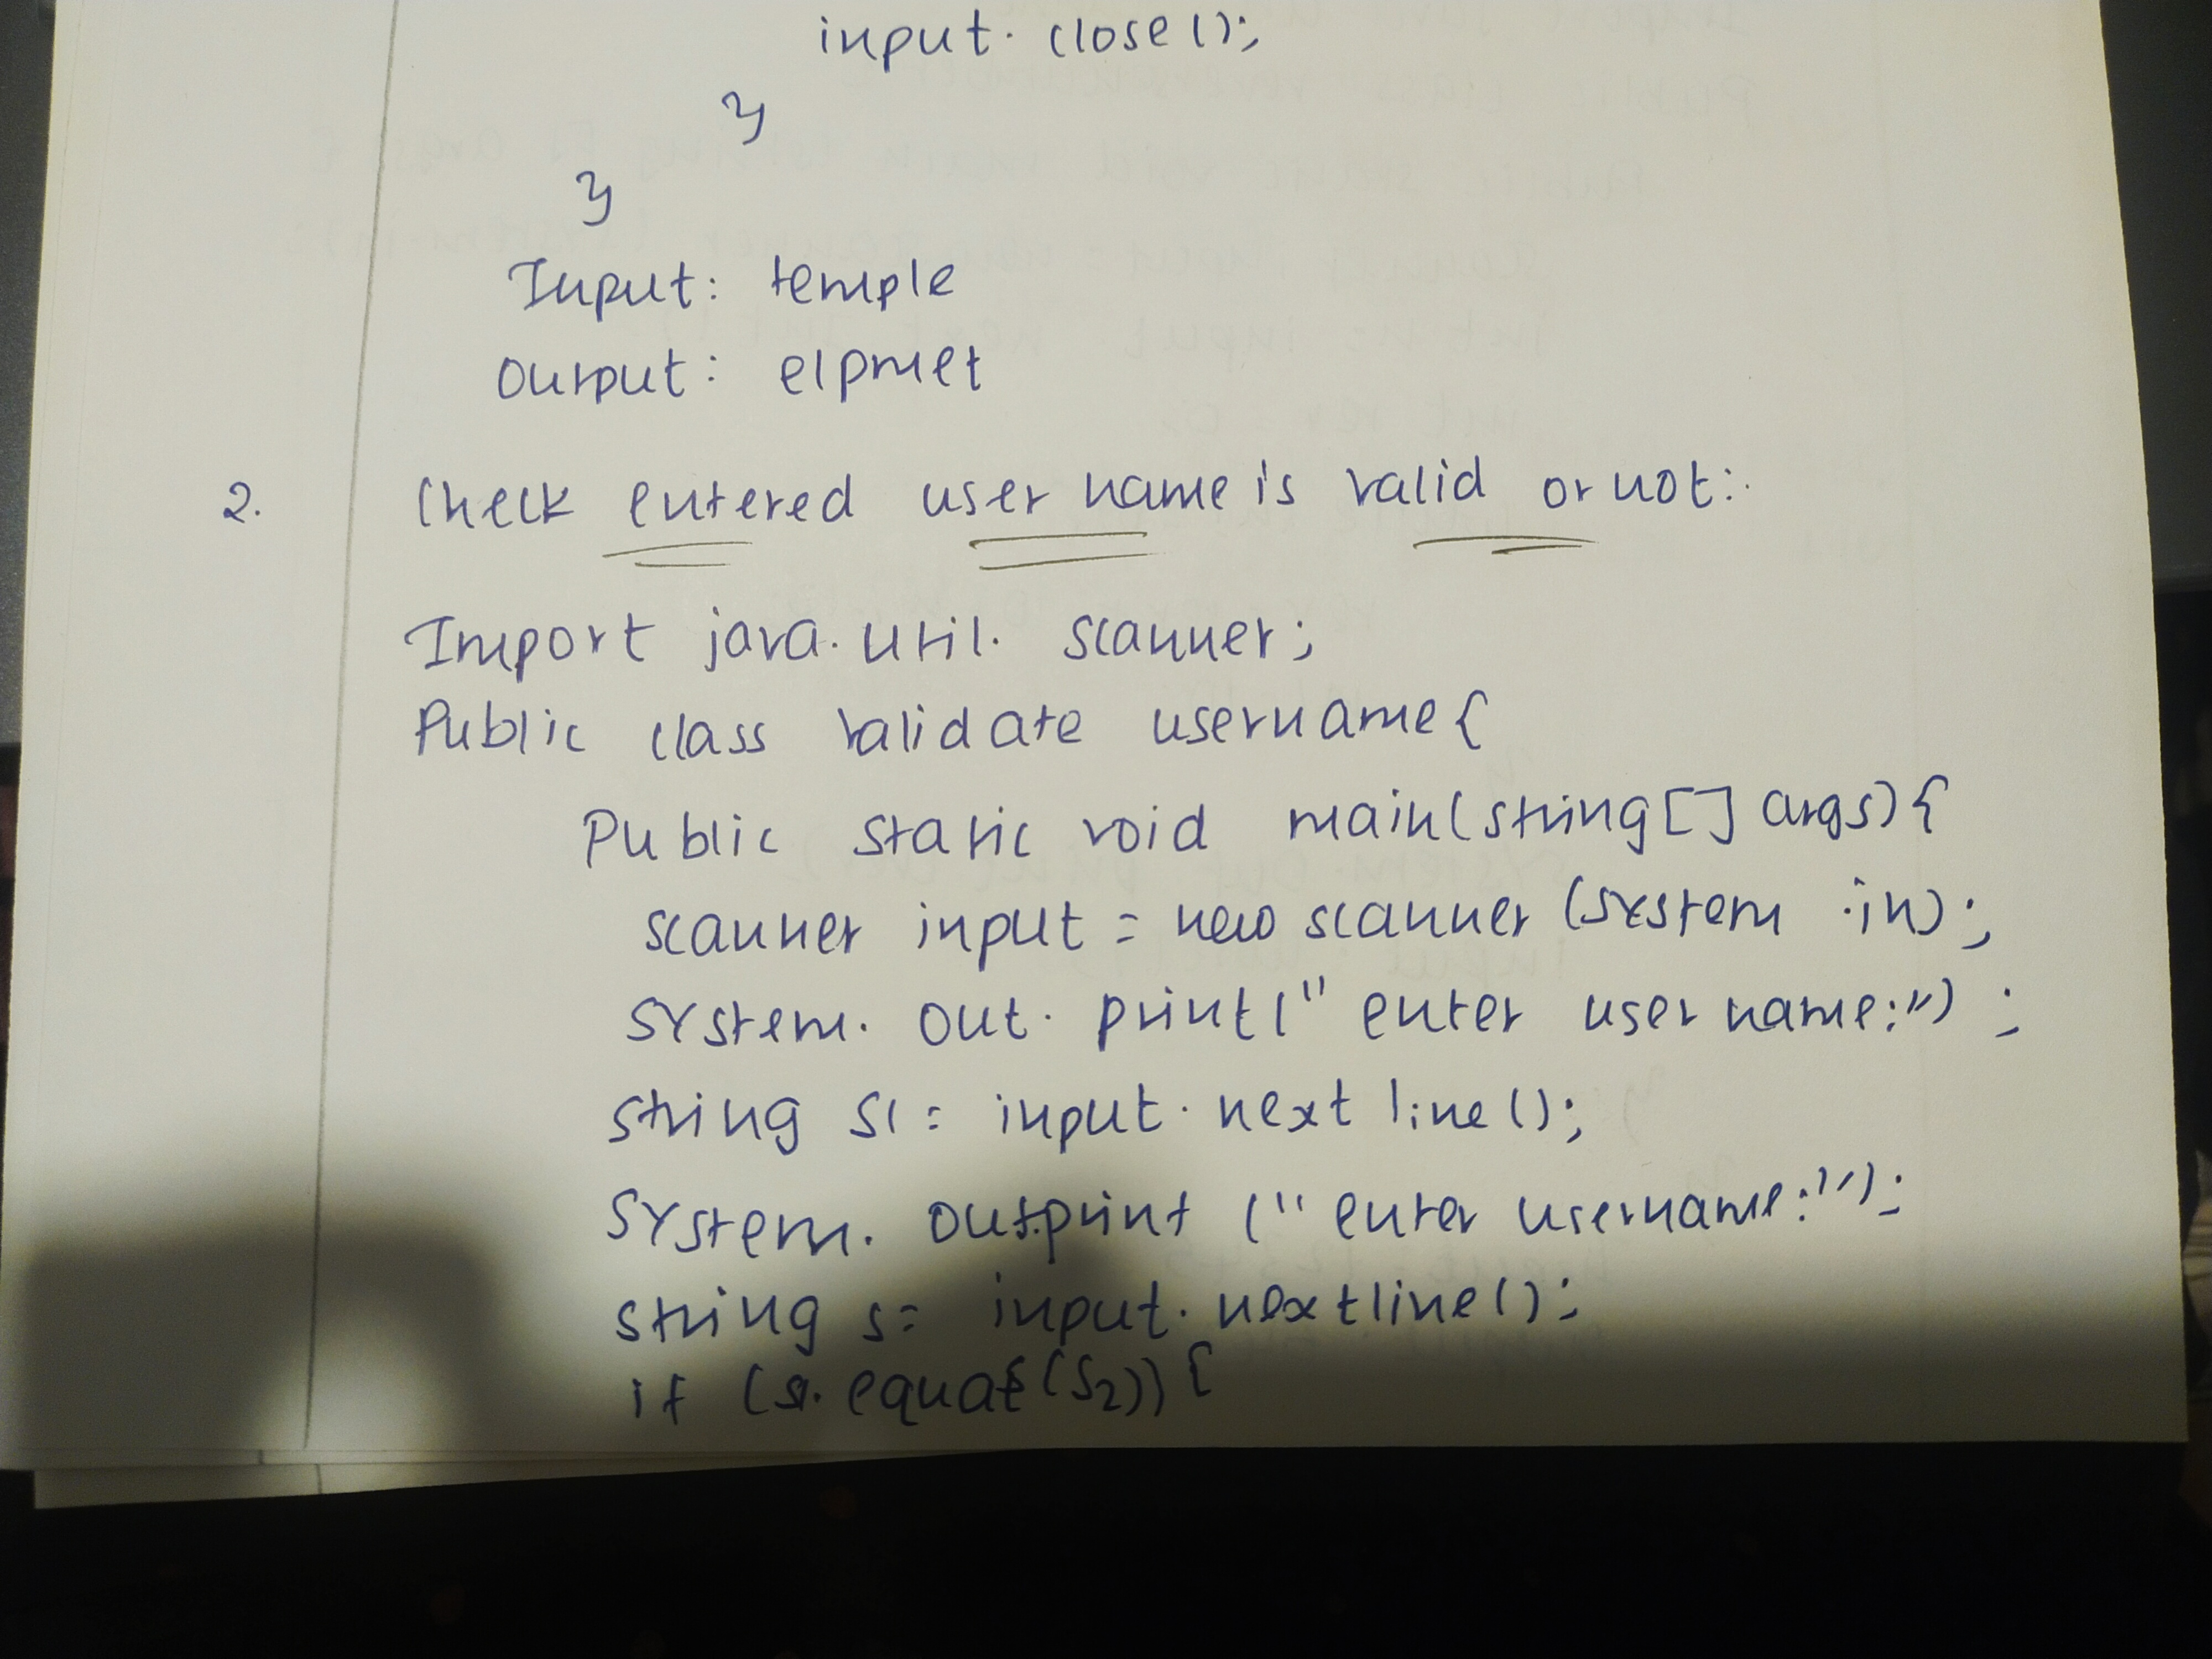 input. close();
}
}
Input: temple
Output: elpmet
2. Check entered user name is valid or not:
Import java.util. scanner;
Public class validate username{
Public static void main(string[] args){
scanner input = new scanner (system .in);
system. out. print(" enter user name:") ;
string s1 = input. next line();
system. out.print (" enter username:");
string s = input. nextline();
if (s1. equals(s2)){